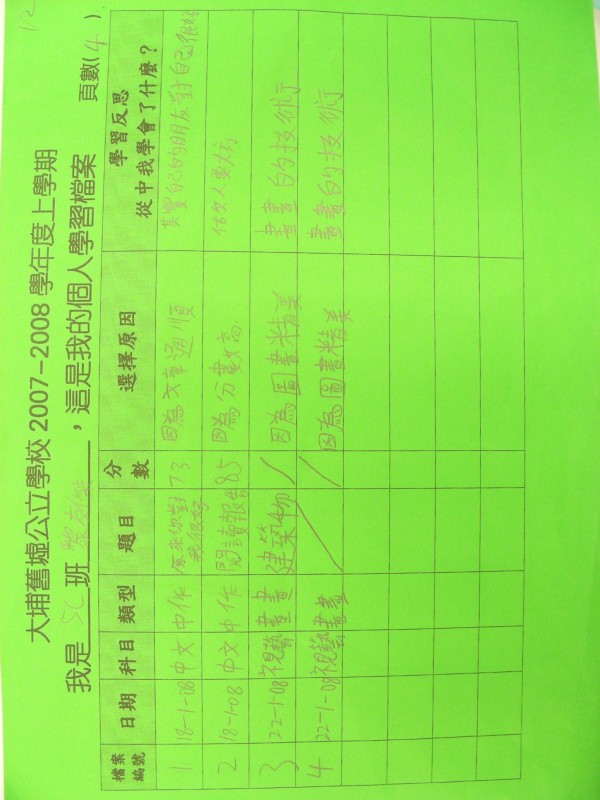 12
大埔舊墟公立學校 2007-2008 學年度上學期
我是 5C 班，這是我的個人學習檔案 頁數( 4 )
檔案編號 日期 科目 類型 題目 分數 選擇原因 學習反思 從中我學會了什麼？
1 18-1-08 中文 中作 原來你對我很好 73 因為文章通順 其實自己的朋友對自己很好
2 18-1-08 中文 中作 閱讀報告 85 因為分數高 人要大方
3 22-1-08 視藝 畫畫 建築物 / 因為圖畫精美 畫畫的技術
4 22-1-08 視藝 畫畫 / / 因為圖畫精美 畫畫的技術